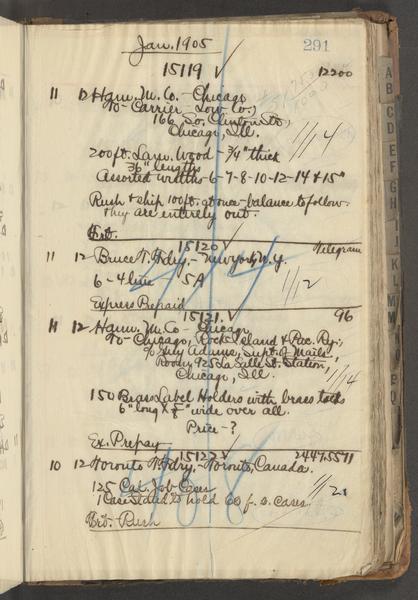 Jan. 1905
291
15119 ✓
12200
11 12 Ham. M. Co. - Chicago
To - Carrier - Low Co.,
166 So. Clinton St.,
Chicago, Ill.
1/14
200 ft. Law. Wood - 3/4" thick
36" lengths
Assorted widths - 6 - 7 - 8 - 10 - 12 - 14 & 15"
Rush & ship 100 ft. at once - balance to follow.
They are entirely out.
Frt.
15120 ✓
Telegram
11 12 Bruce N. Fdry. - New York, N.Y.
6 - 4 line - 5A
1/12
Express Prepaid
15121 ✓
96
11 12 Ham. M. Co - Chicago
To - Chicago, Rock Island & Pac. Ry.,
c/o Guy Adams, Supt. of Mails -,
Room 925 La Salle St. Station,
Chicago, Ill.
1/14
150 Brass Label Holders with brass tacks
Price - ?
Ex. Prepay
15122 ✓
2447.5571
10 12 Toronto N. Fdry, - Toronto, Canada.
125 Cal. Job Cases
1/21
1 Case Stand to hold 60 f. s. cases
Frt. Rush
A
B
C
D
E
F
G
H
I
J
K
L
M